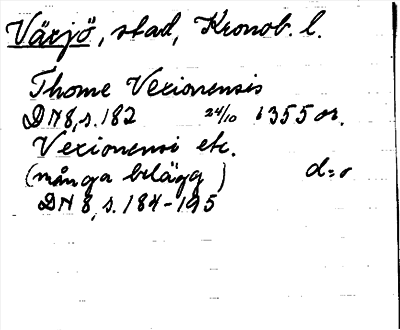 Växjö, stad, Kronob. l.
Thome Vexionensis
DN 8, s. 182 24/10 1355 or.
Vexionensi etc.
(många belägg) d:o
DN 8, s. 184-195